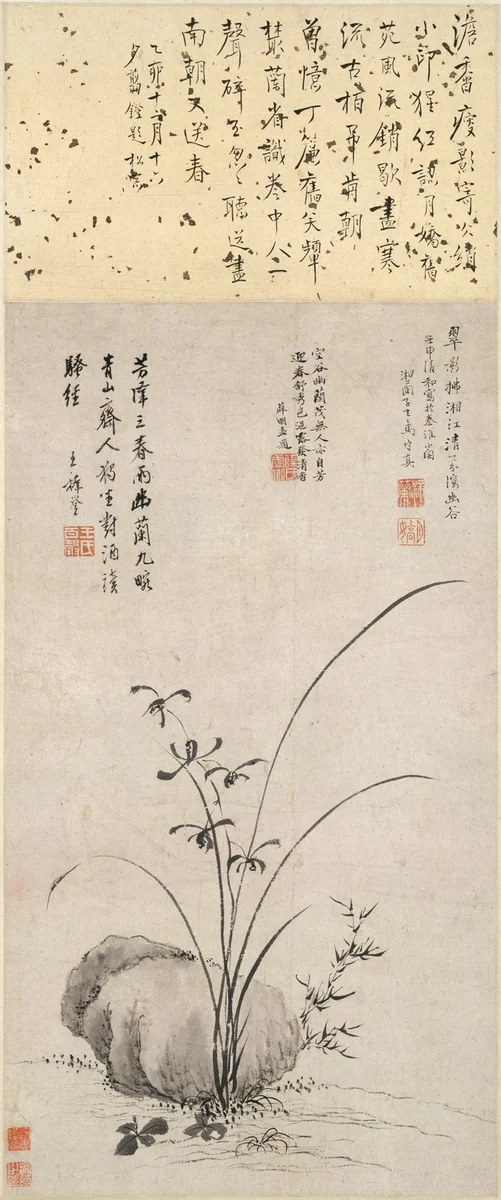 澹香瘦影寄冰綃
小印猩紅認月嬌舊
苑風流銷歇盡寒
流古柏弔前朝
曾憶丁簾舊笑顰
叢蘭省識卷中人一
聲碎玉匆匆聽送盡
南朝又送春
乙卯十二月十六
夕翦鐙題
翠影拂湘江清芬瀉幽谷
壬申清和寫於秦淮小閣
湘蘭子馬守真
空谷幽蘭茂無人亦自芳
迎春舒秀色浥露發清香
薛明益題
芳澤三春雨幽蘭九畹
青山齋人獨坐對酒讀
騷經
王穉登
王氏百穀